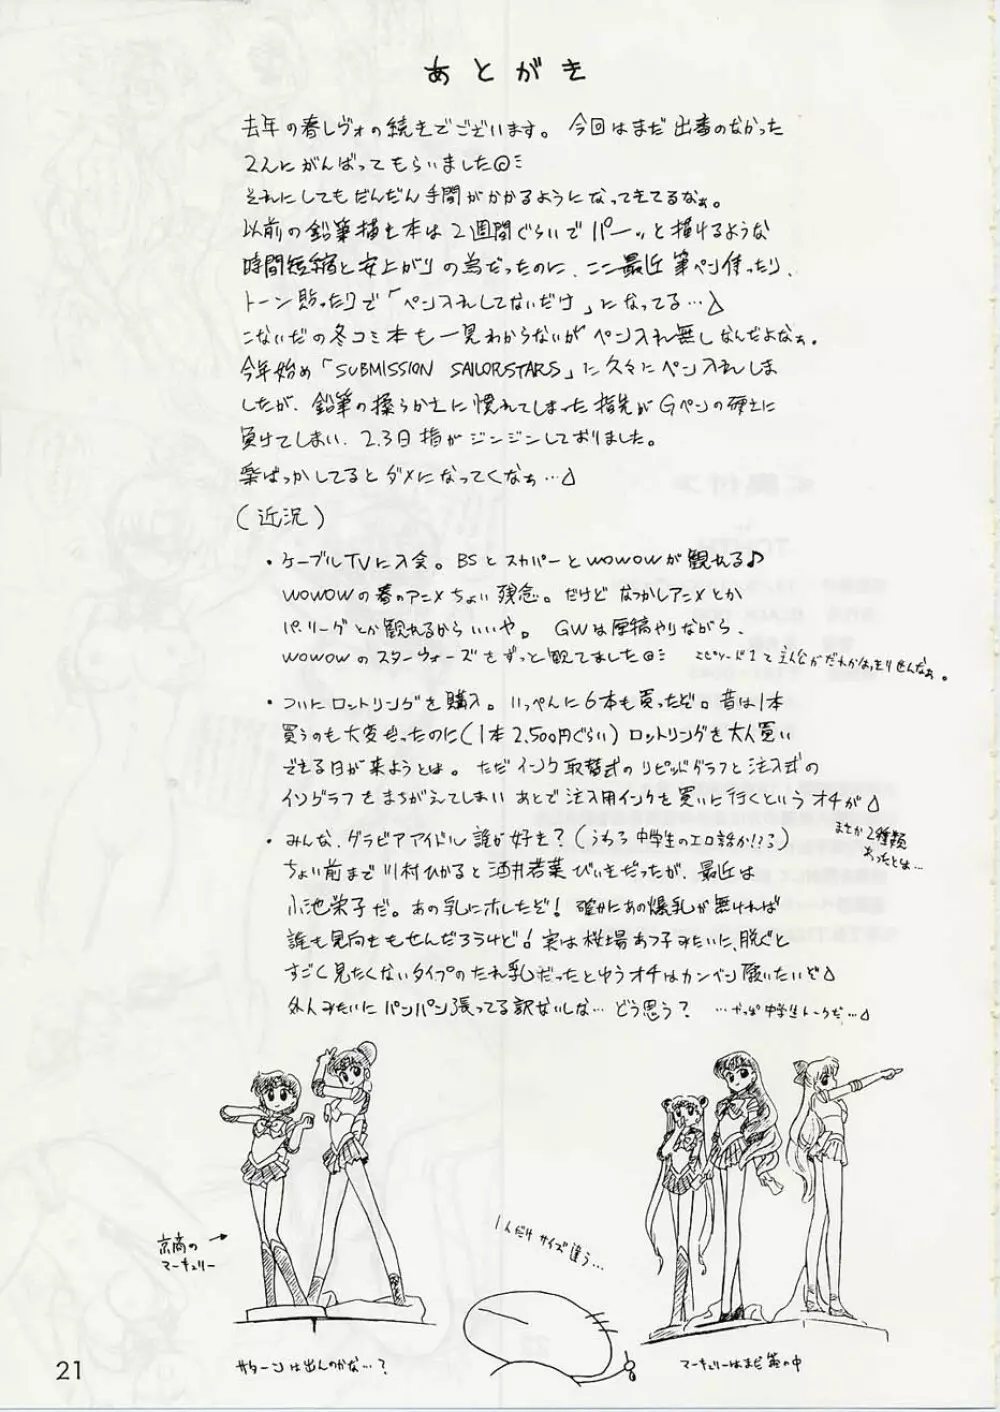 あとがき
去年の春レヴォの続きでございます。今回はまだ出番のなかった
2人にがんばってもらいました
それにしてもだんだん手間がかかるようになってきてるなぁ。
以前の鉛筆描き本は2週間ぐらいでパーッと描けるような
時間短縮と安上がりの為だったのに、ここ最近筆ペン使ったり、
トーン貼ったりで「ペン入れしてないだけ」になってる…
こないだの冬コミ本も一見わからないがペン入れ無しなんだよなぁ。
今年始め「SUBMISSION SAILORSTARS」に久々にペン入れしま
したが、鉛筆の柔らかさに慣れてしまった指先がGペンの硬さに
負けてしまい、2.3日指がジンジンしておりました。
楽ばっかしてるとダメになってくなぁ…
(近況)
・ケーブルTVに入会。BSとスカパーとWOWOWが観れる♪
WOWOWの春のアニメちょい残念。だけどなつかしアニメとか
パ・リーグとか観れるからいいや。GWは原稿やりながら、
WOWOWのスターウォーズをずっと観てました エピソード1て主人公がだれかはっきりせんなぁ。
・ついにロットリングを購入。いっぺんに6本も買ったぞ。昔は1本
買うのも大変だったのに(1本2,500円ぐらい)ロットリングを大人買い
できる日が来ようとは。ただインク取替式のラピッドグラフと注入式の
イソグラフをまちがえてしまいあとで注入用インクを買いに行くというオチが
まさか2種類
あったとは…
・みんな、グラビアアイドル誰が好き?(うわっ中学生のエロ話か!?る)
ちょい前まで川村ひかると酒井若菜びいきだったが、最近は
小池栄子だ。あの乳にホレたぞ!確かにあの爆乳が無ければ
誰も見向きもせんだろうけど!実は桜場あつ子みたいに、脱ぐと
すごく見たくないタイプのたれ乳だったとゆうオチはカンベン願いたいぞ
外人みたいにパンパン張ってる訳ないしな…どう思う? …やっぱ中学生トークだ…
京商の
マーキュリー
1人だけサイズ違う…
サターンは出んのかな…?
マーキュリーはまだ箱の中
21